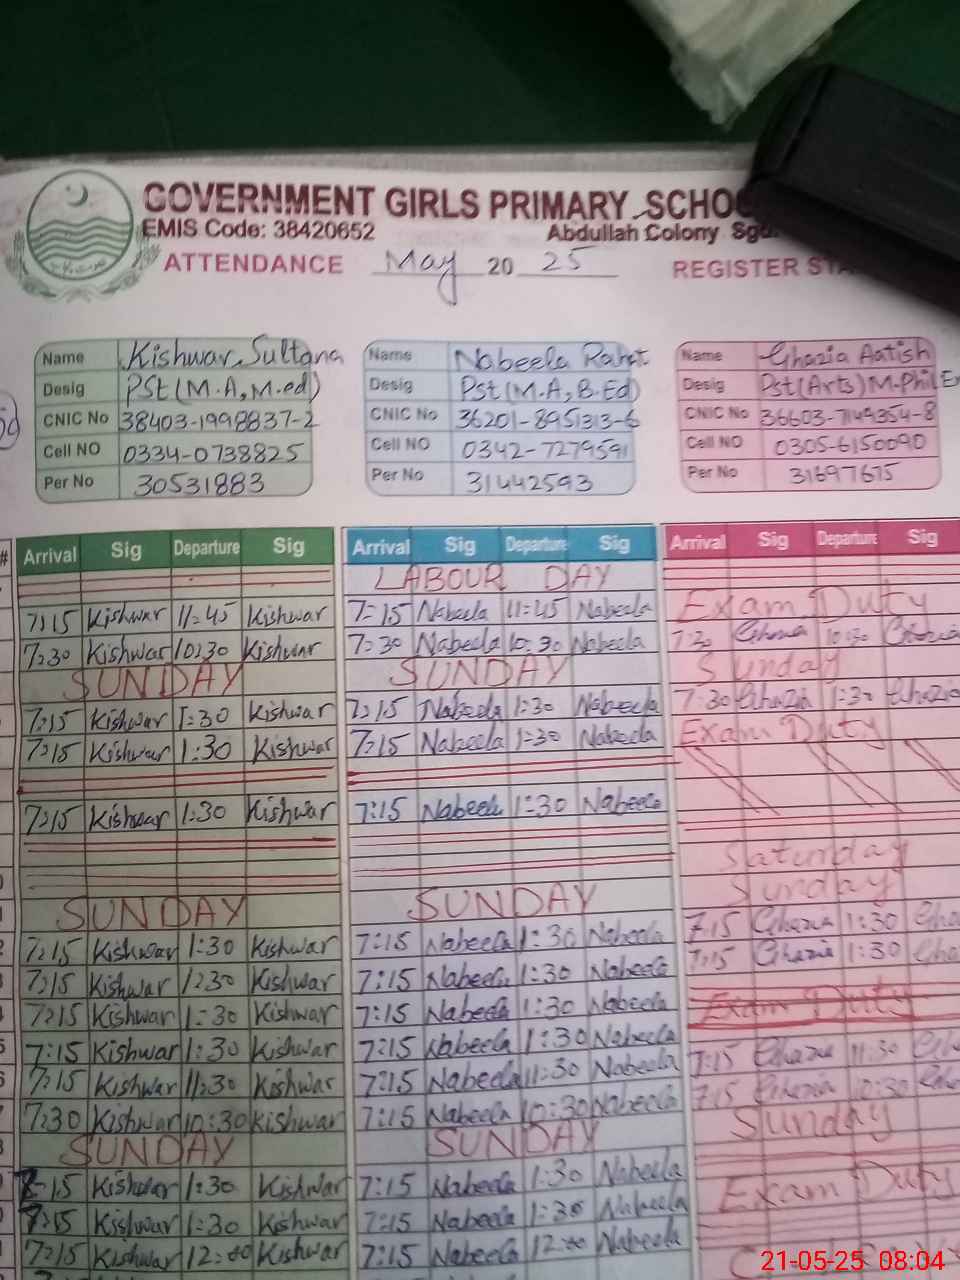 GOVERNMENT GIRLS PRIMARY SCHOO
EMIS Code: 38420652 Abdullah Colony Sgd.
ATTENDANCE May 20 25 REGISTER STA
Name Kishwar Sultana Name Nabeela Rahat Name Ghazia Aatish
Desig PSt (M.A, M.ed) Desig Pst (M.A, B.Ed) Desig Pst (Arts) M.Phil E
CNIC No 38403-1998837-2 CNIC No 36201-8951313-6 CNIC No 36603-7149354-8
Cell NO 0334-0738825 Cell NO 0342-7279591 Cell NO 0305-6150090
Per No 30531883 Per No 31442593 Per No 31697675
# Arrival Sig Departure Sig Arrival Sig Departure Sig Arrival Sig Departure Sig
LABOUR DAY
7:15 Kishwar 11:45 Kishwar 7:15 Nabeela 11:45 Nabeela Exam Duty
7:30 Kishwar 10:30 Kishwar 7:30 Nabeela 10:30 Nabeela 7:30 Ghazia 10:30 Ghazia
SUNDAY SUNDAY Sunday
7:15 Kishwar 1:30 Kishwar 7:15 Nabeela 1:30 Nabeela 7:30 Ghazia 1:30 Ghazia
7:15 Kishwar 1:30 Kishwar 7:15 Nabeela 1:30 Nabeela Exam Duty
7:15 Kishwar 1:30 Kishwar 7:15 Nabeela 1:30 Nabeela
Saturday
SUNDAY SUNDAY Sunday
7:15 Kishwar 1:30 Kishwar 7:15 Nabeela 1:30 Nabeela 7:15 Ghazia 1:30 Gha
7:15 Kishwar 1:30 Kishwar 7:15 Nabeela 1:30 Nabeela 7:15 Ghazia 1:30 Gha
7:15 Kishwar 1:30 Kishwar 7:15 Nabeela 1:30 Nabeela Exam Duty
7:15 Kishwar 1:30 Kishwar 7:15 Nabeela 1:30 Nabeela 7:15 Ghazia 11:30
7:15 Kishwar 11:30 Kishwar 7:15 Nabeela 11:30 Nabeela 7:15 Ghazia 10:30
7:30 Kishwar 10:30 Kishwar 7:15 Nabeela 10:30 Nabeela Sunday
SUNDAY SUNDAY
7:15 Kishwar 1:30 Kishwar 7:15 Nabeela 1:30 Nabeela Exam Duty
7:15 Kishwar 1:30 Kishwar 7:15 Nabeela 1:30 Nabeela
7:15 Kishwar 12:00 Kishwar 7:15 Nabeela 12:00 Nabeela
21-05-25 08:04